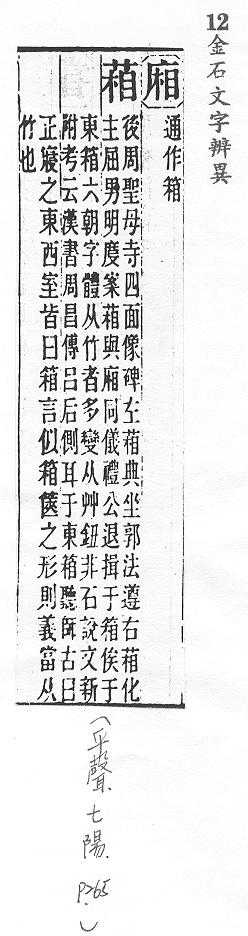 12金石文字辨異
廂 通作箱
葙
後周聖母寺四面像碑左葙典坐郭法遵右葙化
主屈男明慶案葙與廂同儀禮公退揖于箱俟于
東箱六朝字體从竹者多變从艸鈕非石說文新
附考云漢書周昌傳呂后側耳于東箱聽師古曰
正寢之東西室皆曰箱言似箱篋之形則義當从
竹也
(平聲七陽 P.265)